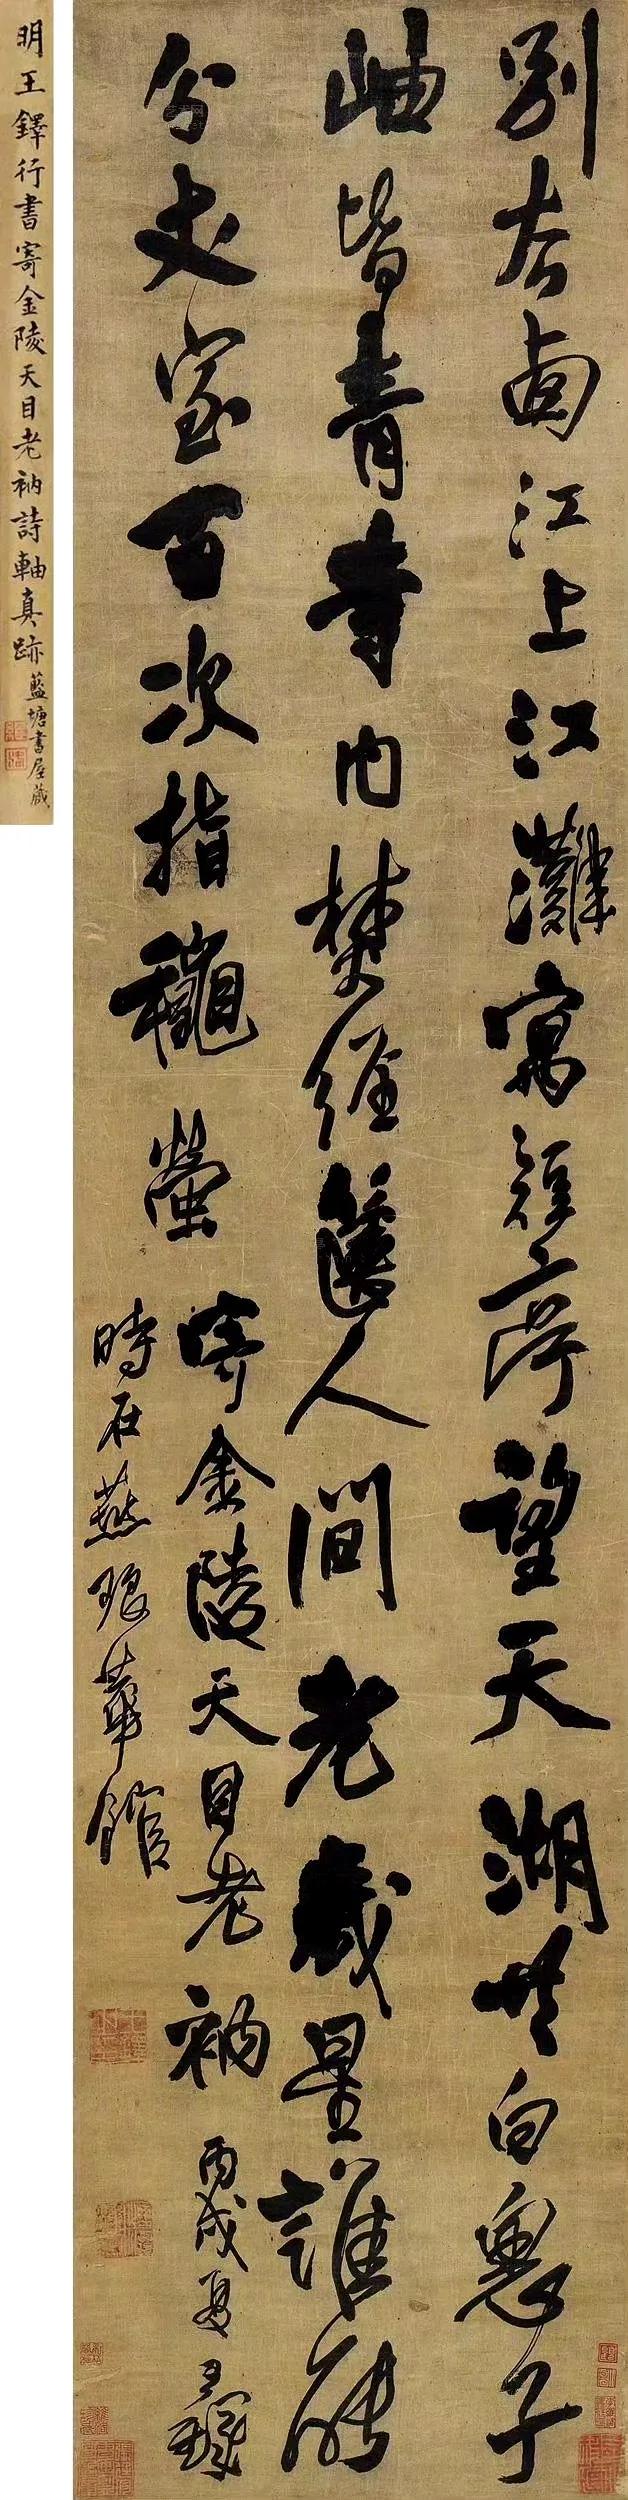 別西江上江灘寓短亭望天湖共白思子
岫皆青寺內焚經人間老歲星誰能
分丈室百次指穐螢
寄金陵天目老衲 丙戌夏王鐸
時在燕琅華館
明王鐸行書寄金陵天目老衲詩軸真跡
藍塘書屋藏